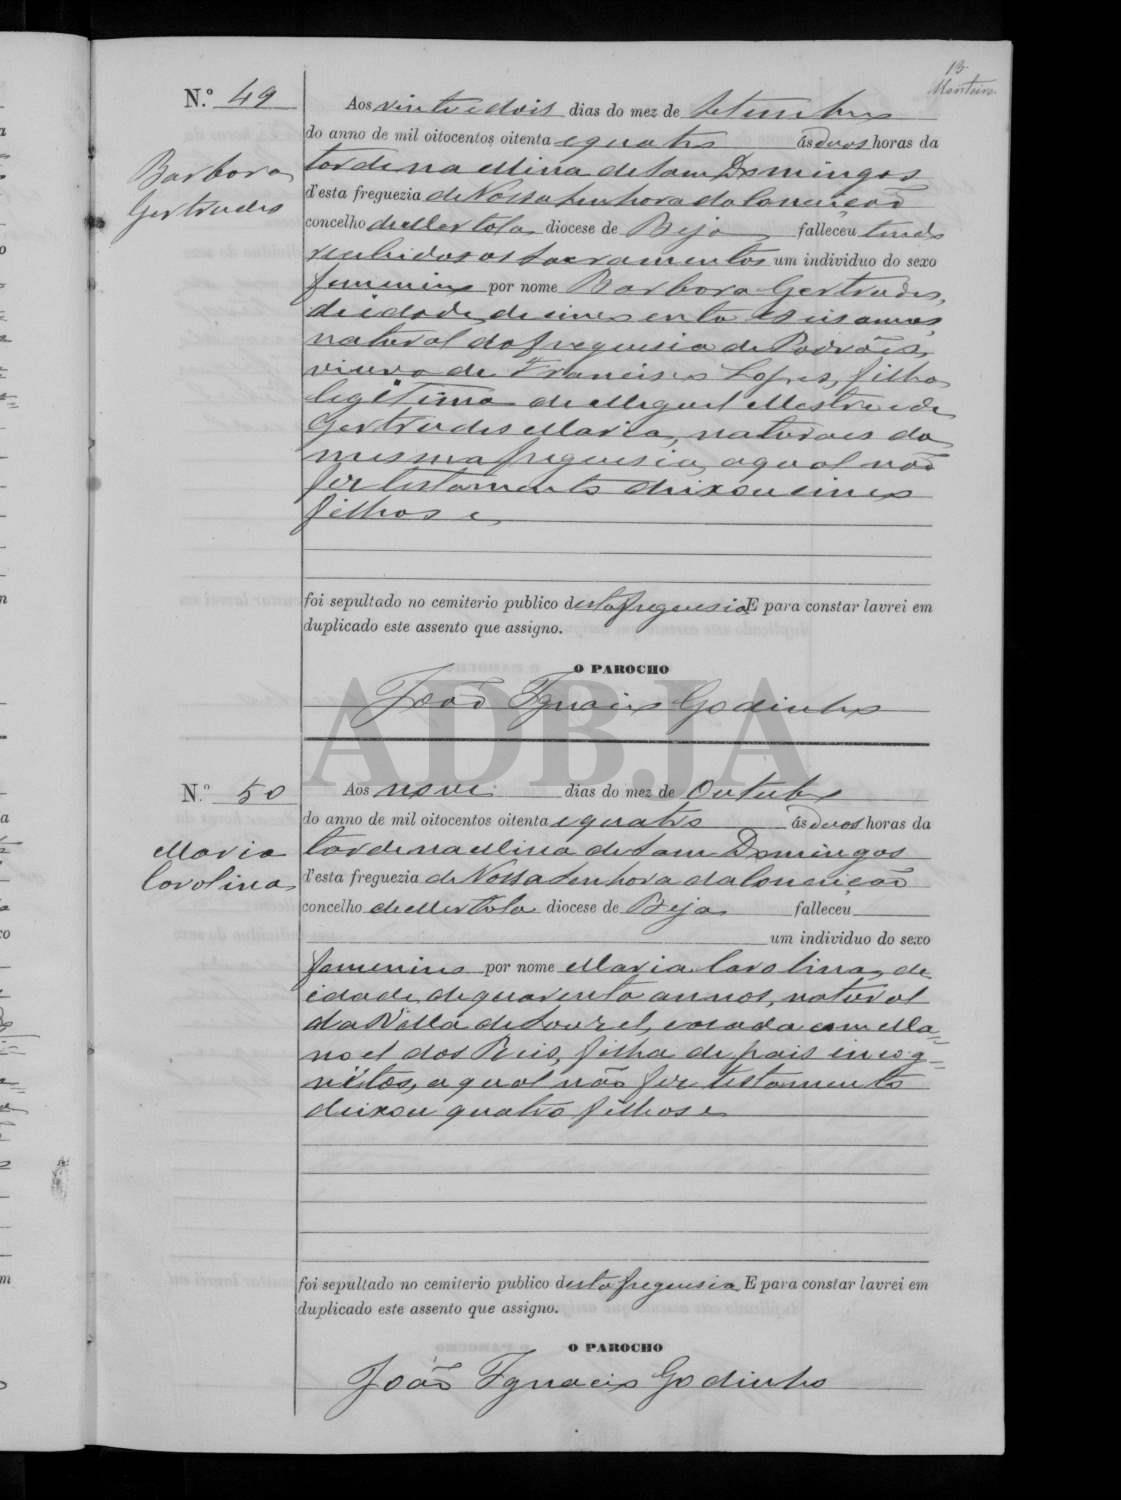 13
Monteiro
N.º 49
Barbora
Gertrudes
Aos vinte e dois dias do mez de Setembro
do anno de mil oitocentos oitenta e quatro ás duas horas da
tarde na Mina de Sam Domingos
d'esta freguezia de Nossa Senhora da Conceição
concelho de Mertola diocese de Beja falleceu tendo
recebido os Sacramentos um individuo do sexo
femenino por nome Barbora Gertrudes,
de idade de cincoenta e seis annos,
natural da freguesia de Padrões,
viuva de Francisco Lopes, filha
legitima de Miguel Mestre e de
Gertrudes Maria, naturaes da
mesma freguesia, a qual não
fez testamento deixou cinco
filhos e
foi sepultado no cemiterio publico desta freguesia E para constar lavrei em
duplicado este assento que assigno.
O PAROCHO
João Ignacio Godinho
ADBJA
N.º 50
Maria
Carolina
Aos nove dias do mez de Outubro
do anno de mil oitocentos oitenta e quatro ás duas horas da
tarde na Mina de Sam Domingos
d'esta freguezia de Nossa Senhora da Conceição
concelho de Mertola diocese de Beja falleceu
um individuo do sexo
femenino por nome Maria Carolina, de
idade de quarenta annos, natural
da Villa de Lourel, casada com Ma=
noel dos Reis, filha de pais incog=
nitos, a qual não fez testamento
deixou quatro filhos e
foi sepultado no cemiterio publico desta freguesia E para constar lavrei em
duplicado este assento que assigno.
O PAROCHO
João Ignacio Godinho